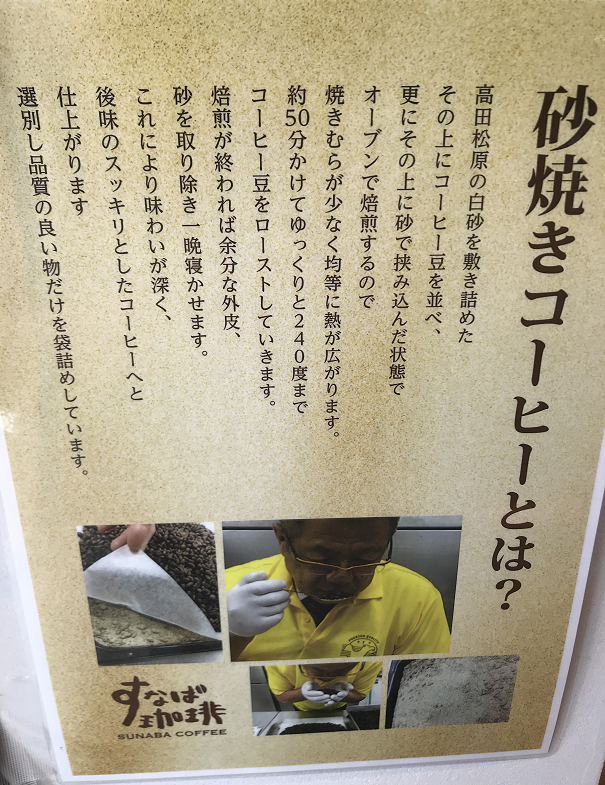 砂焼きコーヒーとは？
高田松原の白砂を敷き詰めた
その上にコーヒー豆を並べ、
更にその上に砂で挟み込んだ状態で
オーブンで焙煎するので
焼きむらが少なく均等に熱が広がります。
約50分かけてゆっくりと240度まで
コーヒー豆をローストしていきます。
焙煎が終われば余分な外皮、
砂を取り除き一晩寝かせます。
これにより味わいが深く、
後味のスッキリとしたコーヒーへと
仕上がります
選別し品質の良い物だけを袋詰めしています。
すなば
珈琲
SUNABA COFFEE